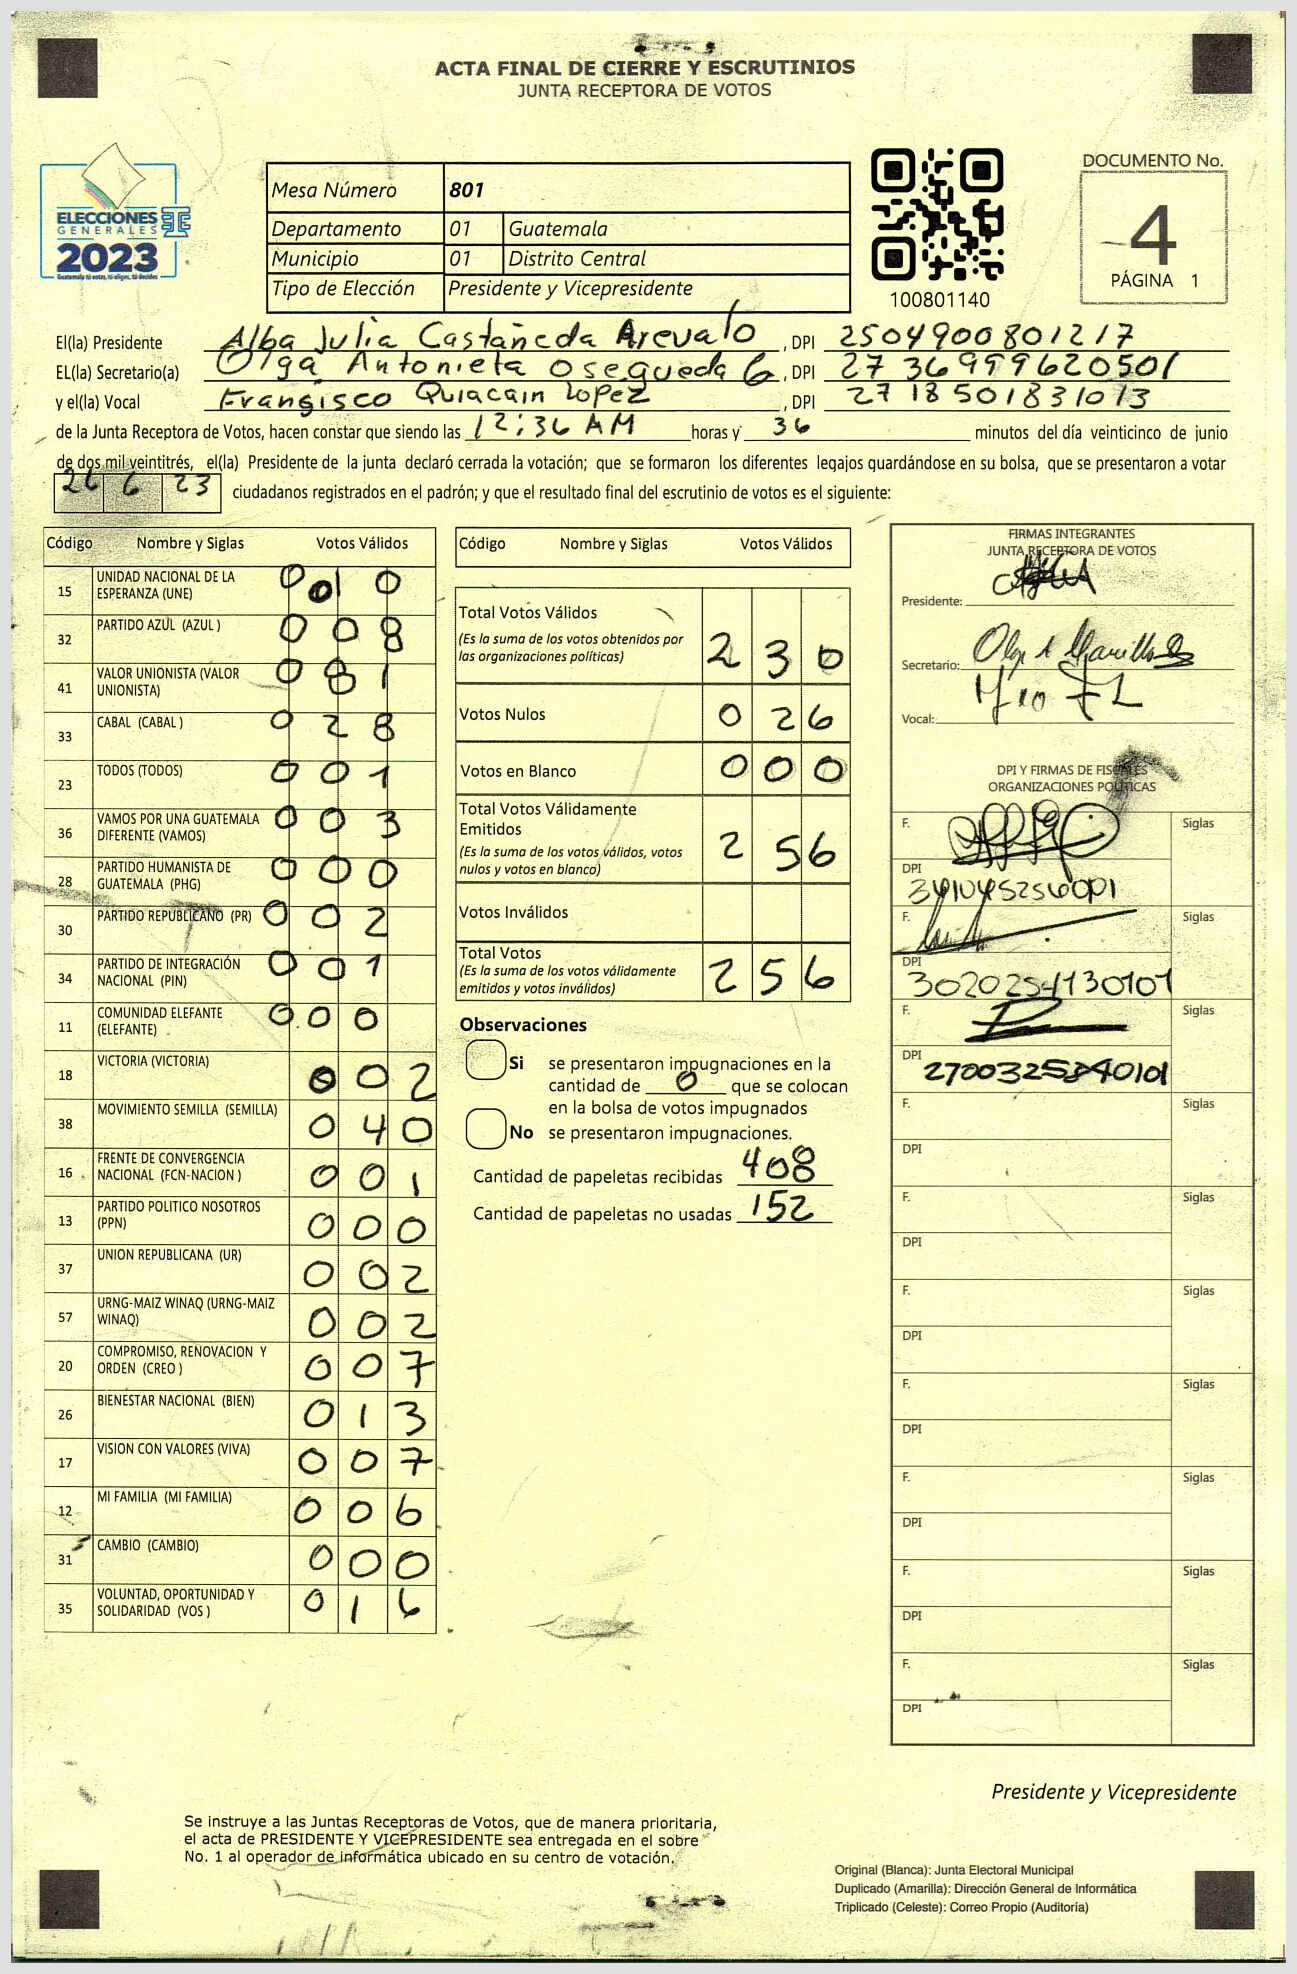 ACTA FINAL DE CIERRE Y ESCRUTINIOS
JUNTA RECEPTORA DE VOTOS
ELECCIONES
GENERALES
2023
Guatemala tú votas, tú eliges, tú decides
Mesa Número 801
Departamento 01 Guatemala
Municipio 01 Distrito Central
Tipo de Elección Presidente y Vicepresidente
100801140
DOCUMENTO No.
4
PÁGINA 1
El(la) Presidente Alba Julia Castañeda Arevalo, DPI 2504900801217
EL(la) Secretario(a) Olga Antonieta Osegueda G, DPI 27 36999620501
y el(la) Vocal Frangisco Quiacain Lopez, DPI 27 18 501831013
de la Junta Receptora de Votos, hacen constar que siendo las 12:36 AM horas y 36 minutos del día veinticinco de junio
de dos mil veintitrés, el(la) Presidente de la junta declaró cerrada la votación; que se formaron los diferentes legajos guardándose en su bolsa, que se presentaron a votar
26 6 23 ciudadanos registrados en el padrón; y que el resultado final del escrutinio de votos es el siguiente:
Código Nombre y Siglas Votos Válidos
15 UNIDAD NACIONAL DE LA ESPERANZA (UNE) 0 0 1 0
32 PARTIDO AZUL (AZUL ) 0 0 8
41 VALOR UNIONISTA (VALOR UNIONISTA) 0 8 1
33 CABAL (CABAL ) 0 2 8
23 TODOS (TODOS) 0 0 1
36 VAMOS POR UNA GUATEMALA DIFERENTE (VAMOS) 0 0 3
28 PARTIDO HUMANISTA DE GUATEMALA (PHG) 0 0 0
30 PARTIDO REPUBLICANO (PR) 0 0 2
34 PARTIDO DE INTEGRACIÓN NACIONAL (PIN) 0 0 1
11 COMUNIDAD ELEFANTE (ELEFANTE) 0 0 0
18 VICTORIA (VICTORIA) 0 0 2
38 MOVIMIENTO SEMILLA (SEMILLA) 0 4 0
16 FRENTE DE CONVERGENCIA NACIONAL (FCN-NACION ) 0 0 1
13 PARTIDO POLITICO NOSOTROS (PPN) 0 0 0
37 UNION REPUBLICANA (UR) 0 0 2
57 URNG-MAIZ WINAQ (URNG-MAIZ WINAQ) 0 0 2
20 COMPROMISO, RENOVACION Y ORDEN (CREO ) 0 0 7
26 BIENESTAR NACIONAL (BIEN) 0 1 3
17 VISION CON VALORES (VIVA) 0 0 7
12 MI FAMILIA (MI FAMILIA) 0 0 6
31 CAMBIO (CAMBIO) 0 0 0
35 VOLUNTAD, OPORTUNIDAD Y SOLIDARIDAD (VOS ) 0 1 6
Código Nombre y Siglas Votos Válidos
Total Votos Válidos 2 3 0
(Es la suma de los votos obtenidos por
las organizaciones políticas)
Votos Nulos 0 2 6
Votos en Blanco 0 0 0
Total Votos Válidamente
Emitidos 2 5 6
(Es la suma de los votos válidos, votos
nulos y votos en blanco)
Votos Inválidos
Total Votos 2 5 6
(Es la suma de los votos válidamente
emitidos y votos inválidos)
Observaciones
Si se presentaron impugnaciones en la
cantidad de 0 que se colocan
en la bolsa de votos impugnados
No se presentaron impugnaciones.
Cantidad de papeletas recibidas 408
Cantidad de papeletas no usadas 152
FIRMAS INTEGRANTES
JUNTA RECEPTORA DE VOTOS
Presidente:
Secretario:
Vocal:
DPI Y FIRMAS DE FISCALES
ORGANIZACIONES POLÍTICAS
F. Siglas
DPI
F. Siglas
DPI
3020254130101
F. Siglas
DPI
2700325840101
F. Siglas
DPI
F. Siglas
DPI
F. Siglas
DPI
F. Siglas
DPI
F. Siglas
DPI
F. Siglas
DPI
F. Siglas
DPI
Presidente y Vicepresidente
Se instruye a las Juntas Receptoras de Votos, que de manera prioritaria,
el acta de PRESIDENTE Y VICEPRESIDENTE sea entregada en el sobre
No. 1 al operador de informática ubicado en su centro de votación.
Original (Blanca): Junta Electoral Municipal
Duplicado (Amarilla): Dirección General de Informática
Triplicado (Celeste): Correo Propio (Auditoría)